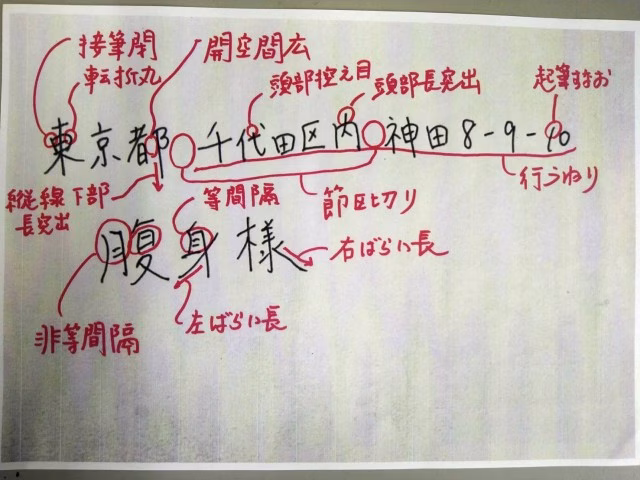 接筆閉
開空間広
転折丸
頭部控え目
頭部長突出
起筆すなお
東京都 千代田区内 神田8-9-10
縦線下部
長突出
等間隔
節区切り
行うねり
腹身様
右ばらい長
左ばらい長
非等間隔